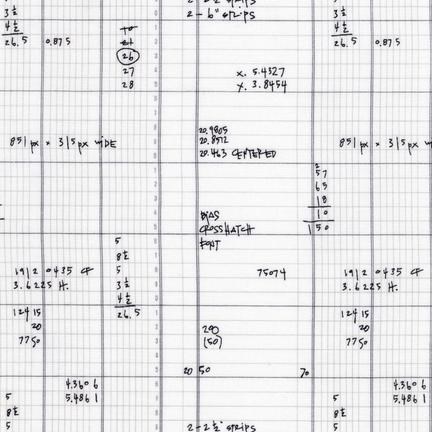 2 - 2 ½" strips
3 ½
2 - 6" strips
3 ½
4 ½
4 ½
26.5 0.875
26.5 0.875
26
27
28
x. 5.4327
y. 3.8454
20.9805
20.8572
20.463 CENTERED
851 px x 315 px WIDE
851 px x 315 px W
2
57
65
18
10
150
BIAS
CROSSHATCH
FONT
5
8 ½
5
3 ½
4 ½
26.5
1912 0435 CF
3.6225 H.
75074
1912 0435 CF
3.6225 H.
124 15
20
7750
200
(50)
124 15
20
7750
20 50 70
4.3606
5.4861
5
8 ½
5
4.3606
5.4861
5
8 ½
5
2 - 2 ½" strips